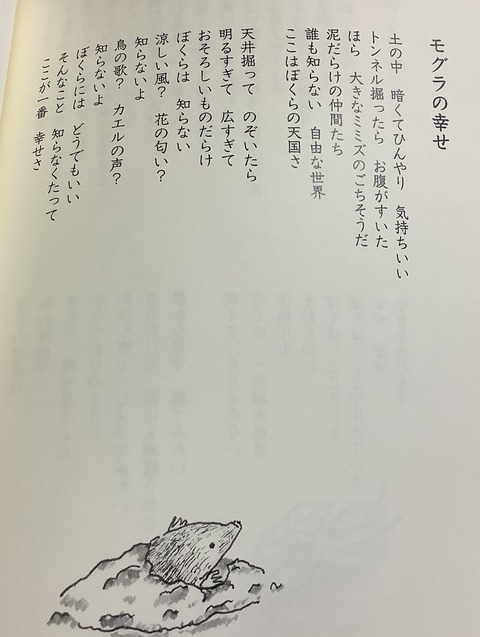 モグラの幸せ
土の中　暗くてひんやり　気持ちいい
トンネル掘ったら　お腹がすいた
ほら　大きなミミズのごちそうだ
泥だらけの仲間たち
誰も知らない　自由な世界
ここはぼくらの天国さ
天井掘って　のぞいたら
明るすぎて　広すぎて
おそろしいものだらけ
ぼくらは　知らない
涼しい風？　花の匂い？
知らないよ
鳥の歌？　カエルの声？
知らないよ
ぼくらには　どうでもいい
そんなこと　知らなくたって
ここが一番　幸せさ